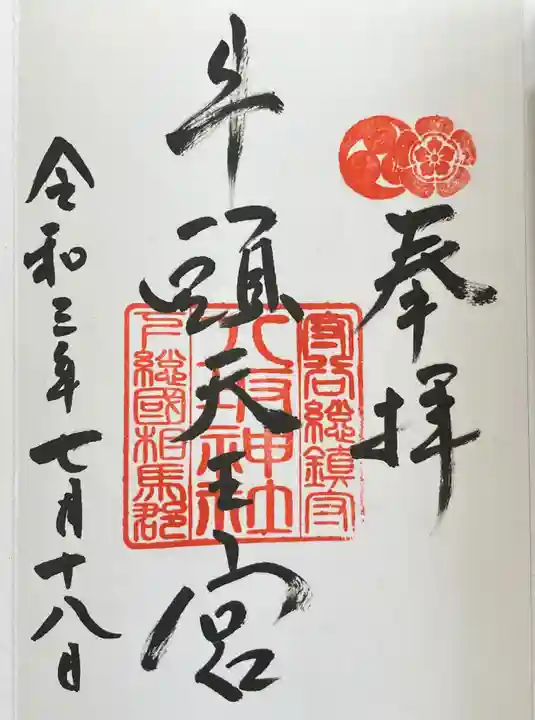 奉拝
牛頭天王宮
令和三年七月十八日
守谷総鎮守
八坂神社
下総國相馬郡